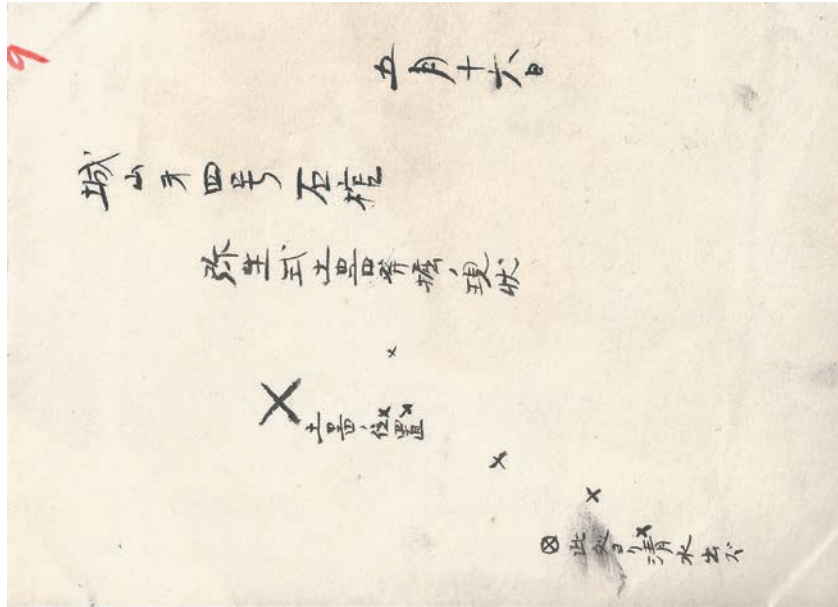 9
五月十六日
城山才四号石棺
弥生式土器発掘ノ現状
土器ノ位置
此処ヨリ清水出ズ